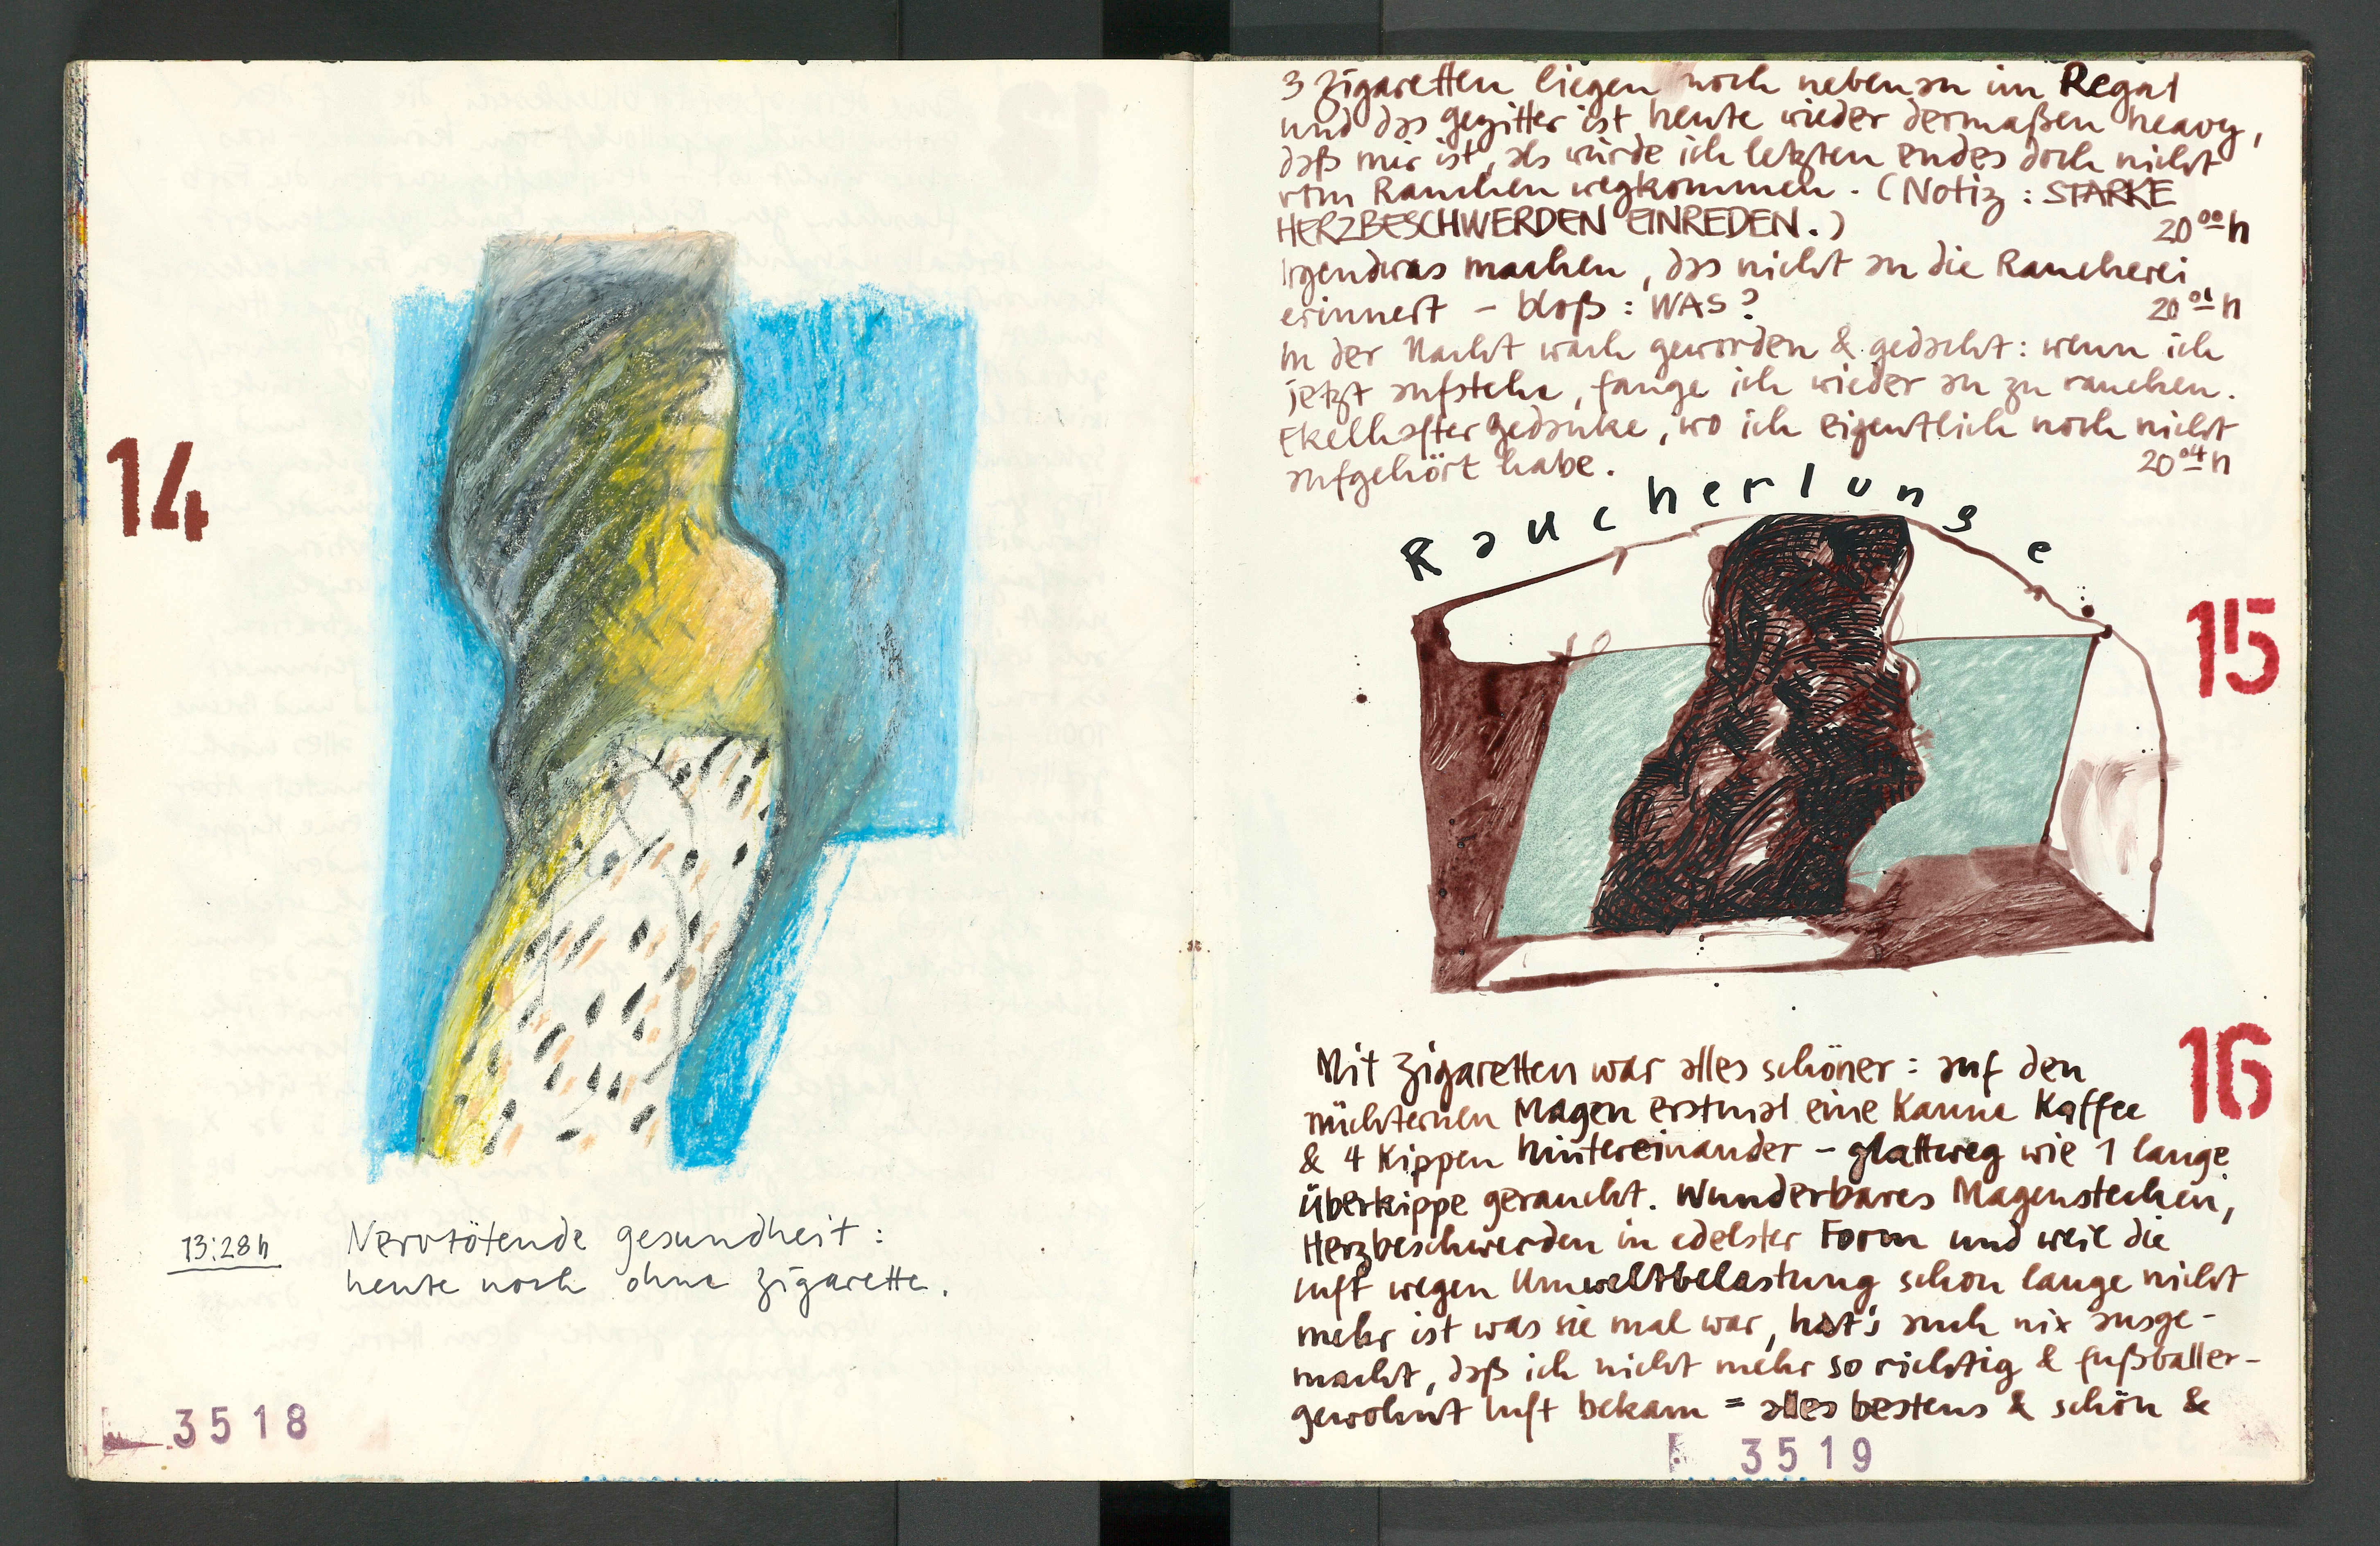 14
13:28h
Nervtötende gesundheit:
heute noch ohne zigarette.
3518
3 Zigaretten liegen noch nebenan im Regal
und das gezitter ist heute wieder dermaßen heavy,
daß mir ist, als würde ich letzten endes doch nicht
vom Rauchen wegkommen. (Notiz: STARKE
HERZBESCHWERDEN EINREDEN.)
20 00 h
Irgendwas machen, das nicht an die Raucherei
erinnert – bloß: WAS?
20 01 h
In der Nacht wach geworden & gedacht: wenn ich
jetzt aufstehe, fange ich wieder an zu rauchen.
Ekelhafter gedanke, wo ich eigentlich noch nicht
aufgehört habe.
20 04 h
Raucherlunge
15
16
Mit Zigaretten war alles schöner: auf den
nüchternen Magen erstmal eine Kanne Kaffee
& 4 Kippen hintereinander – glattweg wie 1 lange
Überkippe geraucht. Wunderbares Magenstechen,
Herzbeschwerden in edelster Form und weil die
luft wegen Umweltbelastung schon lange nicht
mehr ist was sie mal war, hat's auch nix ausge-
macht, daß ich nicht mehr so richtig & fußballer-
gewohnt luft bekam = alles bestens & schön &
3519